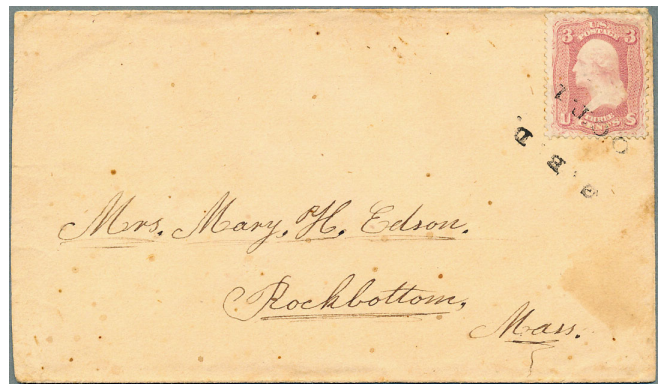 3 U.S. POSTAGE 3
U THREE CENTS S
Mrs. Mary. H. Edson.
Rockbottom,
Mass.